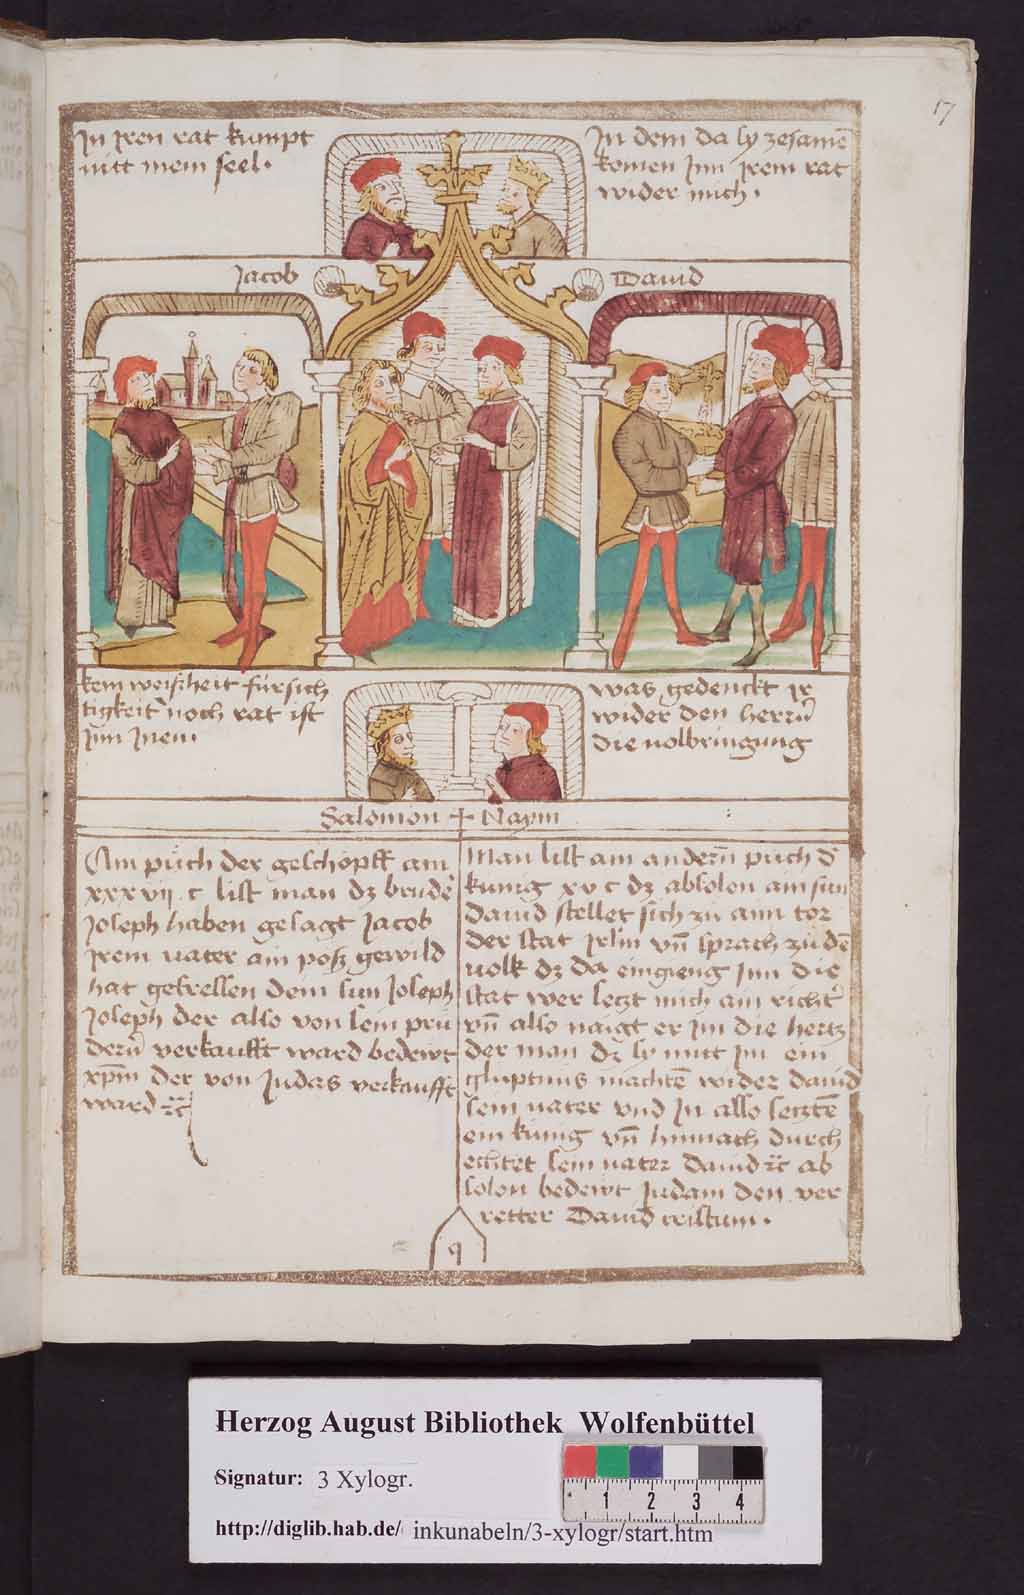 17
In Iren rat kumpt
nitt mein seel.
In dem da sy zesamē
komen Inn Irem rat
wider mich.
Jacob
Dauid
kein weißheit fürsich
tigkeit noch rat ist
Inn Inen.
was gedenckt Ir
wider den herrn̄
die uolbringung
Salomon + Naym
Am půch der geschöpff am
xxxvij. c list man dz brudē
Joseph haben gesagt Jacob
Irem uater ain poß gewild
hat gefressen dem sun Joseph
Joseph der also von sein prü
dern̄ verkaufft ward bedewt
xp̄m der von Judas verkaufft
ward ꝛc̄
Man list am andern̄ puch d̄
kunig xv c dz absolon am sun
dauid stellet sich zu ann tor
der stat Jrl̄m vn̄ sprach zu dē
uolk dz da eingieng Inn die
stat wer setzt mich ain richt̄
vn̄ also naigt er im die hertz
der man dz sy mitt Im ein
glüptnus machtē wider dauid
sein uater vnd In also setztē
ein künig vn̄ hinnach durch
echtet sein uater dauid ꝛc̄ ab
solon bedewt Judam den ver
retter Dauid cristum.
q
Herzog August Bibliothek Wolfenbüttel
Signatur: 3 Xylogr.
1 2 3 4
http://diglib.hab.de/ inkunabeln/3-xylogr/start.htm